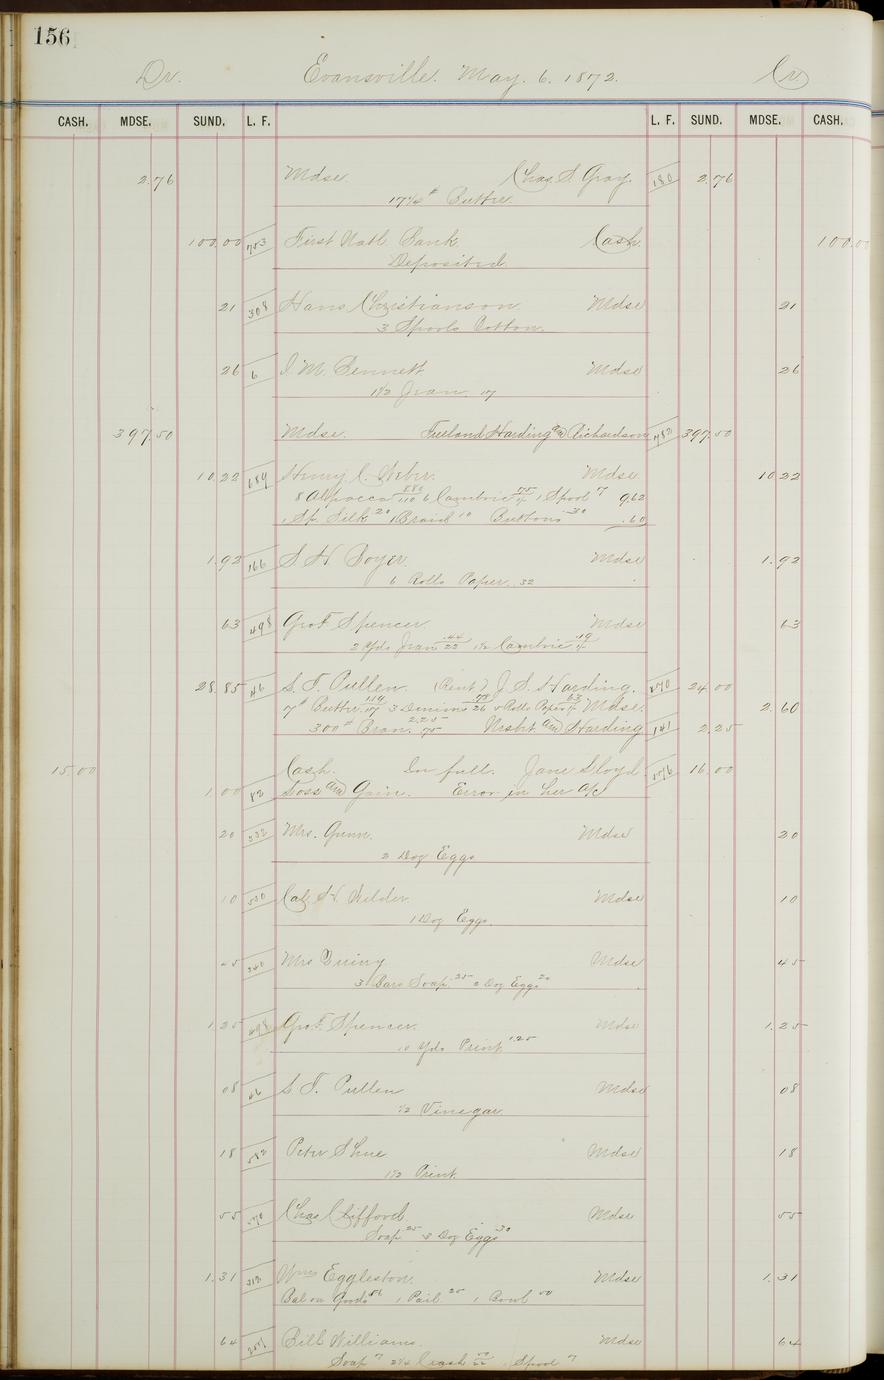 156
Dr. Evansville. May. 6. 1872. Cr
CASH. MDSE. SUND. L. F. L. F. SUND. MDSE. CASH.
2.76 Mdse Chas. S. Gray. 180 2.76
17¼ # Butter
100.00 703 First Natl. Bank Cash 100.00
Deposited
21 308 Hans Christianson Mdse 21
3 Spools Cotton.
26 6 I. M. Bennett Mdse 26
1½ Jean. 17
397.50 Mdse. Freeland Harding and Richardson 482 397.50
10.22 689 Henry C. Weber. Mdse 10 22
8 Alpacca 880/110 6 Cambric 75/ 1 Spool 7 962
1 Sp. Silk 20 1 Braid 10 Buttons 30 .60
1.92 166 S. H. Boyer Mdse 1.92
6 Rolls Paper. 32
63 498 Geo. F. Spencer. Mdse 63
2 Yds Jean .44/22 1½ Cambric .19
28.85 46 S. T. Pullen. (Rent) J. S. Harding. 270 24 00
7 # Butter 119/17 3 Denims 78/26 Rolls Paper 63 Mdse. 2.60
300 # Bran. 2.25/75 and Harding 141 2.25
15.00 Cash. In full. Jane Lloyd 276 16.00
1 00 82 Loss and Gain. Error in her a/c
20 332 Mrs. Gunn. Mdse 20
2 Doz Eggs
10 530 Cal. H. Wilder. Mdse 10
1 Doz Eggs.
45 340 Mrs Mdse 45
3 Bars Soap. 25 2 Doz Eggs 20
1.25 498 Geo. F. Spencer. Mdse 1.25
10 Yds Print 1.25
08 46 S. T. Pullen Mdse 08
½ Vinegar.
18 582 Peter Shue Mdse 18
1½ Print.
55 570 Chas Clifford Mdse 55
Soap 25 3 Doz Eggs 30
1.31 313 Wm Eggleston. Mdse 1.31
Bal on Goods 56 1 Pail 25 1 Bowl 50
64 257 Bill Williams. Mdse 64
Soap 7 2¼ Crash 50/22 1 Spool 7